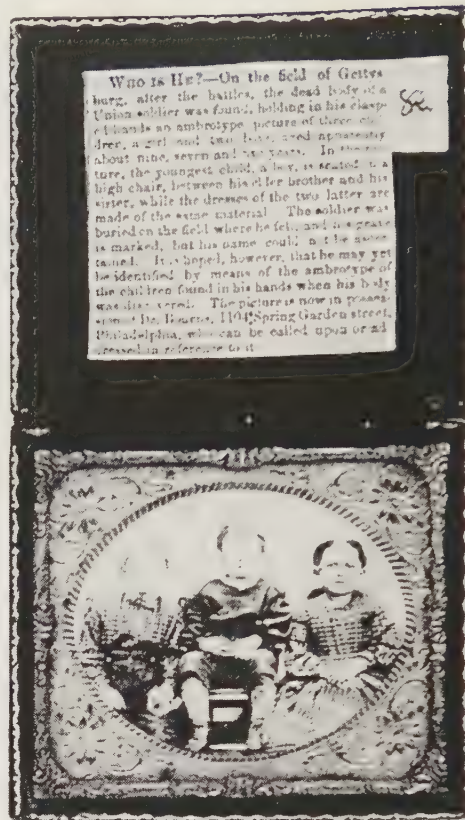 WHO IS HE?—On the field of Gettys
burg, after the battles, the dead body of a
Union soldier was found, holding in his clasp-
ed hands an ambrotype picture of three chil
dren, a girl and two boys, aged apparently
about nine, seven and five years. In the pic-
ture, the youngest child, a boy, is seated in a
high chair, between his elder brother and his
sister, while the dresses of the two latter are
made of the same material. The soldier was
buried on the field where he fell, and his grave
is marked, but his name could not be ascer-
tained. It is hoped, however, that he may yet
be identified by means of the ambrotype of
the children found in his hands when his body
was discovered. The picture is now in posses-
sion of Dr. Bourns, 1104 Spring Garden street,
Philadelphia, who can be called upon or ad
dressed in reference to it